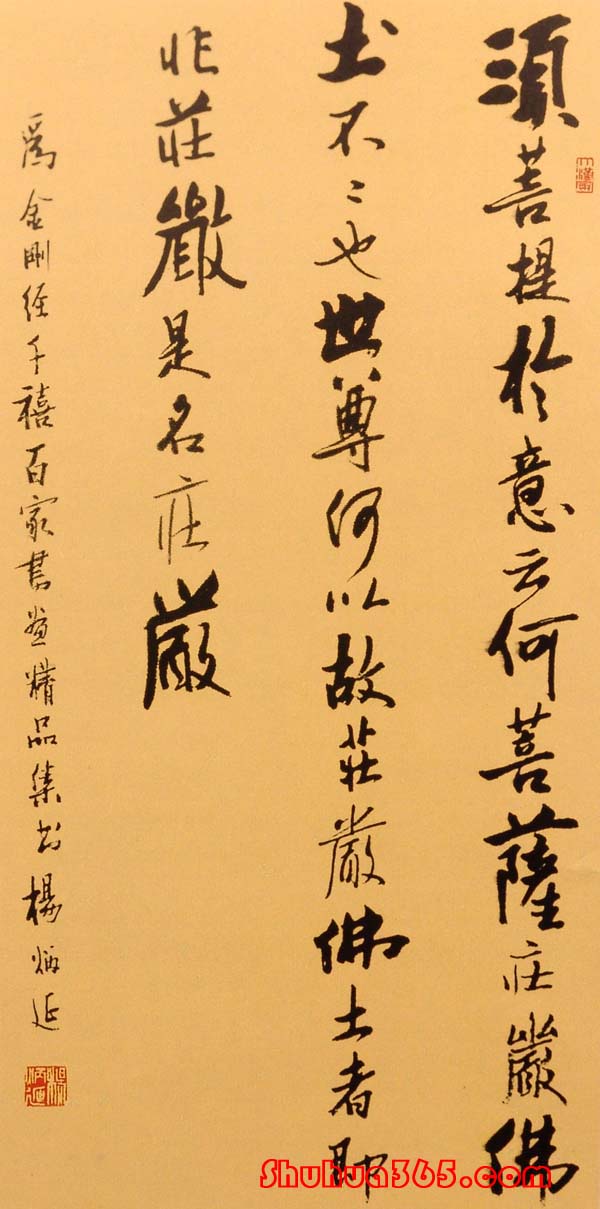 須菩提於意云何菩薩莊嚴佛
土不〻也世尊何以故莊嚴佛土者即
非莊嚴是名莊嚴
爲金剛經千禧百家書畫精品集書楊炳延
Shuhua365.com